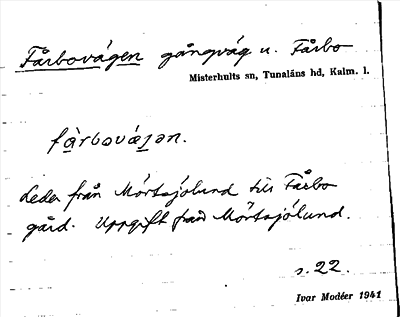 Fårbovägen gångväg u. Fårbo
Misterhults sn, Tunaläns hd, Kalm. l.
fårbovä̀gen.
Leder från Mörtsjölund till Fårbo
gård. Uppgift från Mörtsjölund.
s. 22.
Ivar Modéer 1941